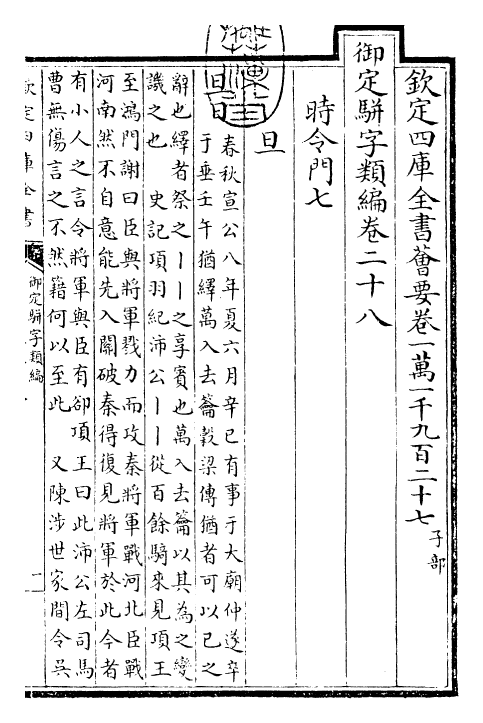 欽定四庫全書薈要卷一萬一千九百二十七 子部
御定駢字類編卷二十八
時令門七
旦
旦日 春秋宣公八年夏六月辛巳有事于大廟仲遂卒
于垂壬午猶繹萬入去籥穀梁傳猶者可以已之
辭也繹者祭之丨丨之享賓也萬入去籥以其為之變
譏之也 史記項羽紀沛公丨丨從百餘騎來見項王
至鴻門謝曰臣與將軍戮力而攻秦將軍戰河北臣戰
河南然不自意能先入關破秦得復見將軍於此今者
有小人之言令將軍與臣有郤項王曰此沛公左司馬
曹無傷言之不然籍何以至此 又陳涉世家間令吳
欽定四庫全書
御定駢字類編